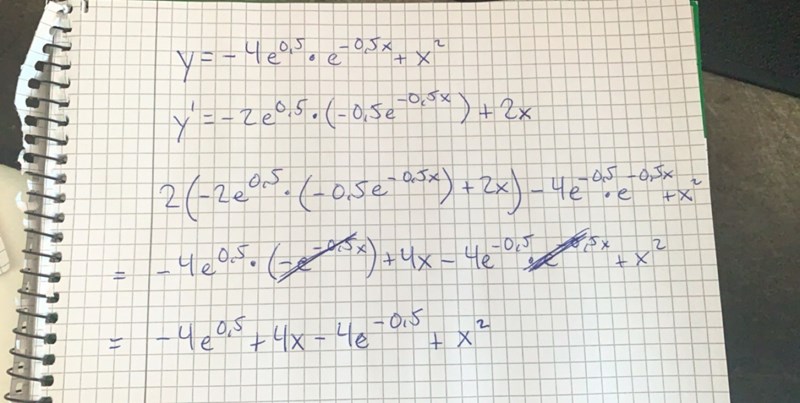 y = -4e^0,5 · e^-0,5x + x^2
y' = -2e^0,5 · (-0,5e^-0,5x) + 2x
2(-2e^0,5 · (-0,5e^-0,5x) + 2x) - 4e^-0,5 · e^-0,5x + x^2
= -4e^0,5 · (-e^-0,5x) + 4x - 4e^-0,5 · e^-0,5x + x^2
= -4e^0,5 + 4x - 4e^-0,5 + x^2